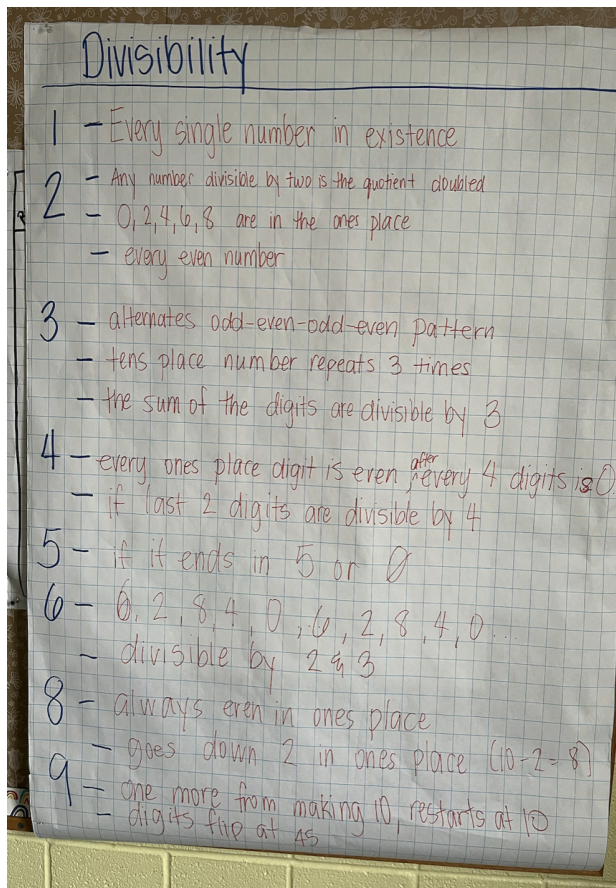 Divisibility
1 - Every single number in existence
2 - Any number divisible by two is the quotient doubled
- 0, 2, 4, 6, 8 are in the ones place
- every even number
3 - alternates odd-even-odd-even pattern
- tens place number repeats 3 times
- the sum of the digits are divisible by 3
4 - every ones place digit is even, after every 4 digits is 0
- if last 2 digits are divisible by 4
5 - if it ends in 5 or 0
6 - 6, 2, 8, 4, 0, 6, 2, 8, 4, 0...
- divisible by 2 & 3
8 - always even in ones place
- goes down 2 in ones place (10-2=8)
9 - one more from making 10, restarts at 10
- digits flip at 45